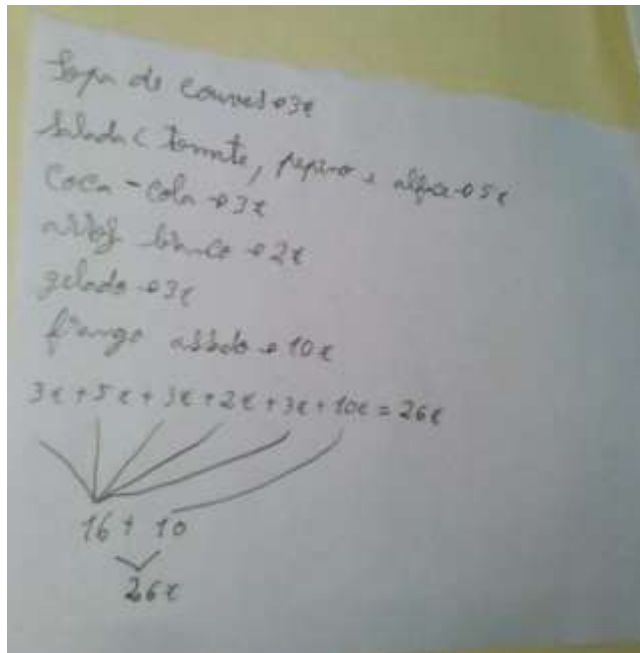 Sopa de couves → 3€
Salada ( tomate, pepino e alface → 5€
Coca-cola → 3€
arroz branco → 2€
gelado → 3€
frango assado → 10€
3€ + 5€ + 3€ + 2€ + 3€ + 10€ = 26€
16 + 10
26€